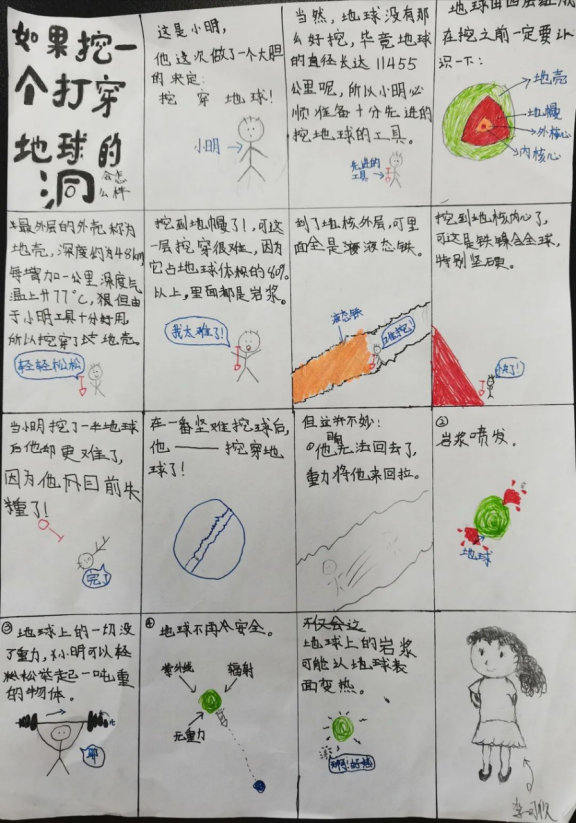 如果挖一
个打穿
地球的
洞
这是小明,
他这次做了一个大胆
的决定:
挖穿地球!
小明
当然,地球没有那
么好挖,毕竟地球
的直径长达11455
公里呢,所以小明必
须准备十分先进的
挖地球的工具。
先进的
工具
在挖之前一定要认
识一下:
地壳
地幔
外核心
内核心
最外层的外壳称为
地壳,深度约为48km
每增加一公里深度气
温上升77℃,但由
于小明工具十分好用,
所以挖穿了这地壳。
轻轻松松
挖到地幔了!,可这
一层挖穿很难,因为
它占地球体积的80%
以上,里面都是岩浆。
我太难了!
到了地核外层,可里
面全是液态铁。
液态铁
挖到地核内心了,
可这是铁镍合金球,
特别坚硬。
当小明挖了一半地球
后他却更难了,
因为他目前失
重了!
完了
在一番坚难挖球后,
他——挖穿地
球了!
但这并不妙:
他无法回去了,
重力将他来回拉。
②
岩浆喷发。
地球
③地球上的一切没
了重力,小明可以轻
松举起一吨重
的物体。
④地球不再安全。
紫外线
辐射
无重力
不仅会这
地球上的岩浆
可能从地球表
面变热。